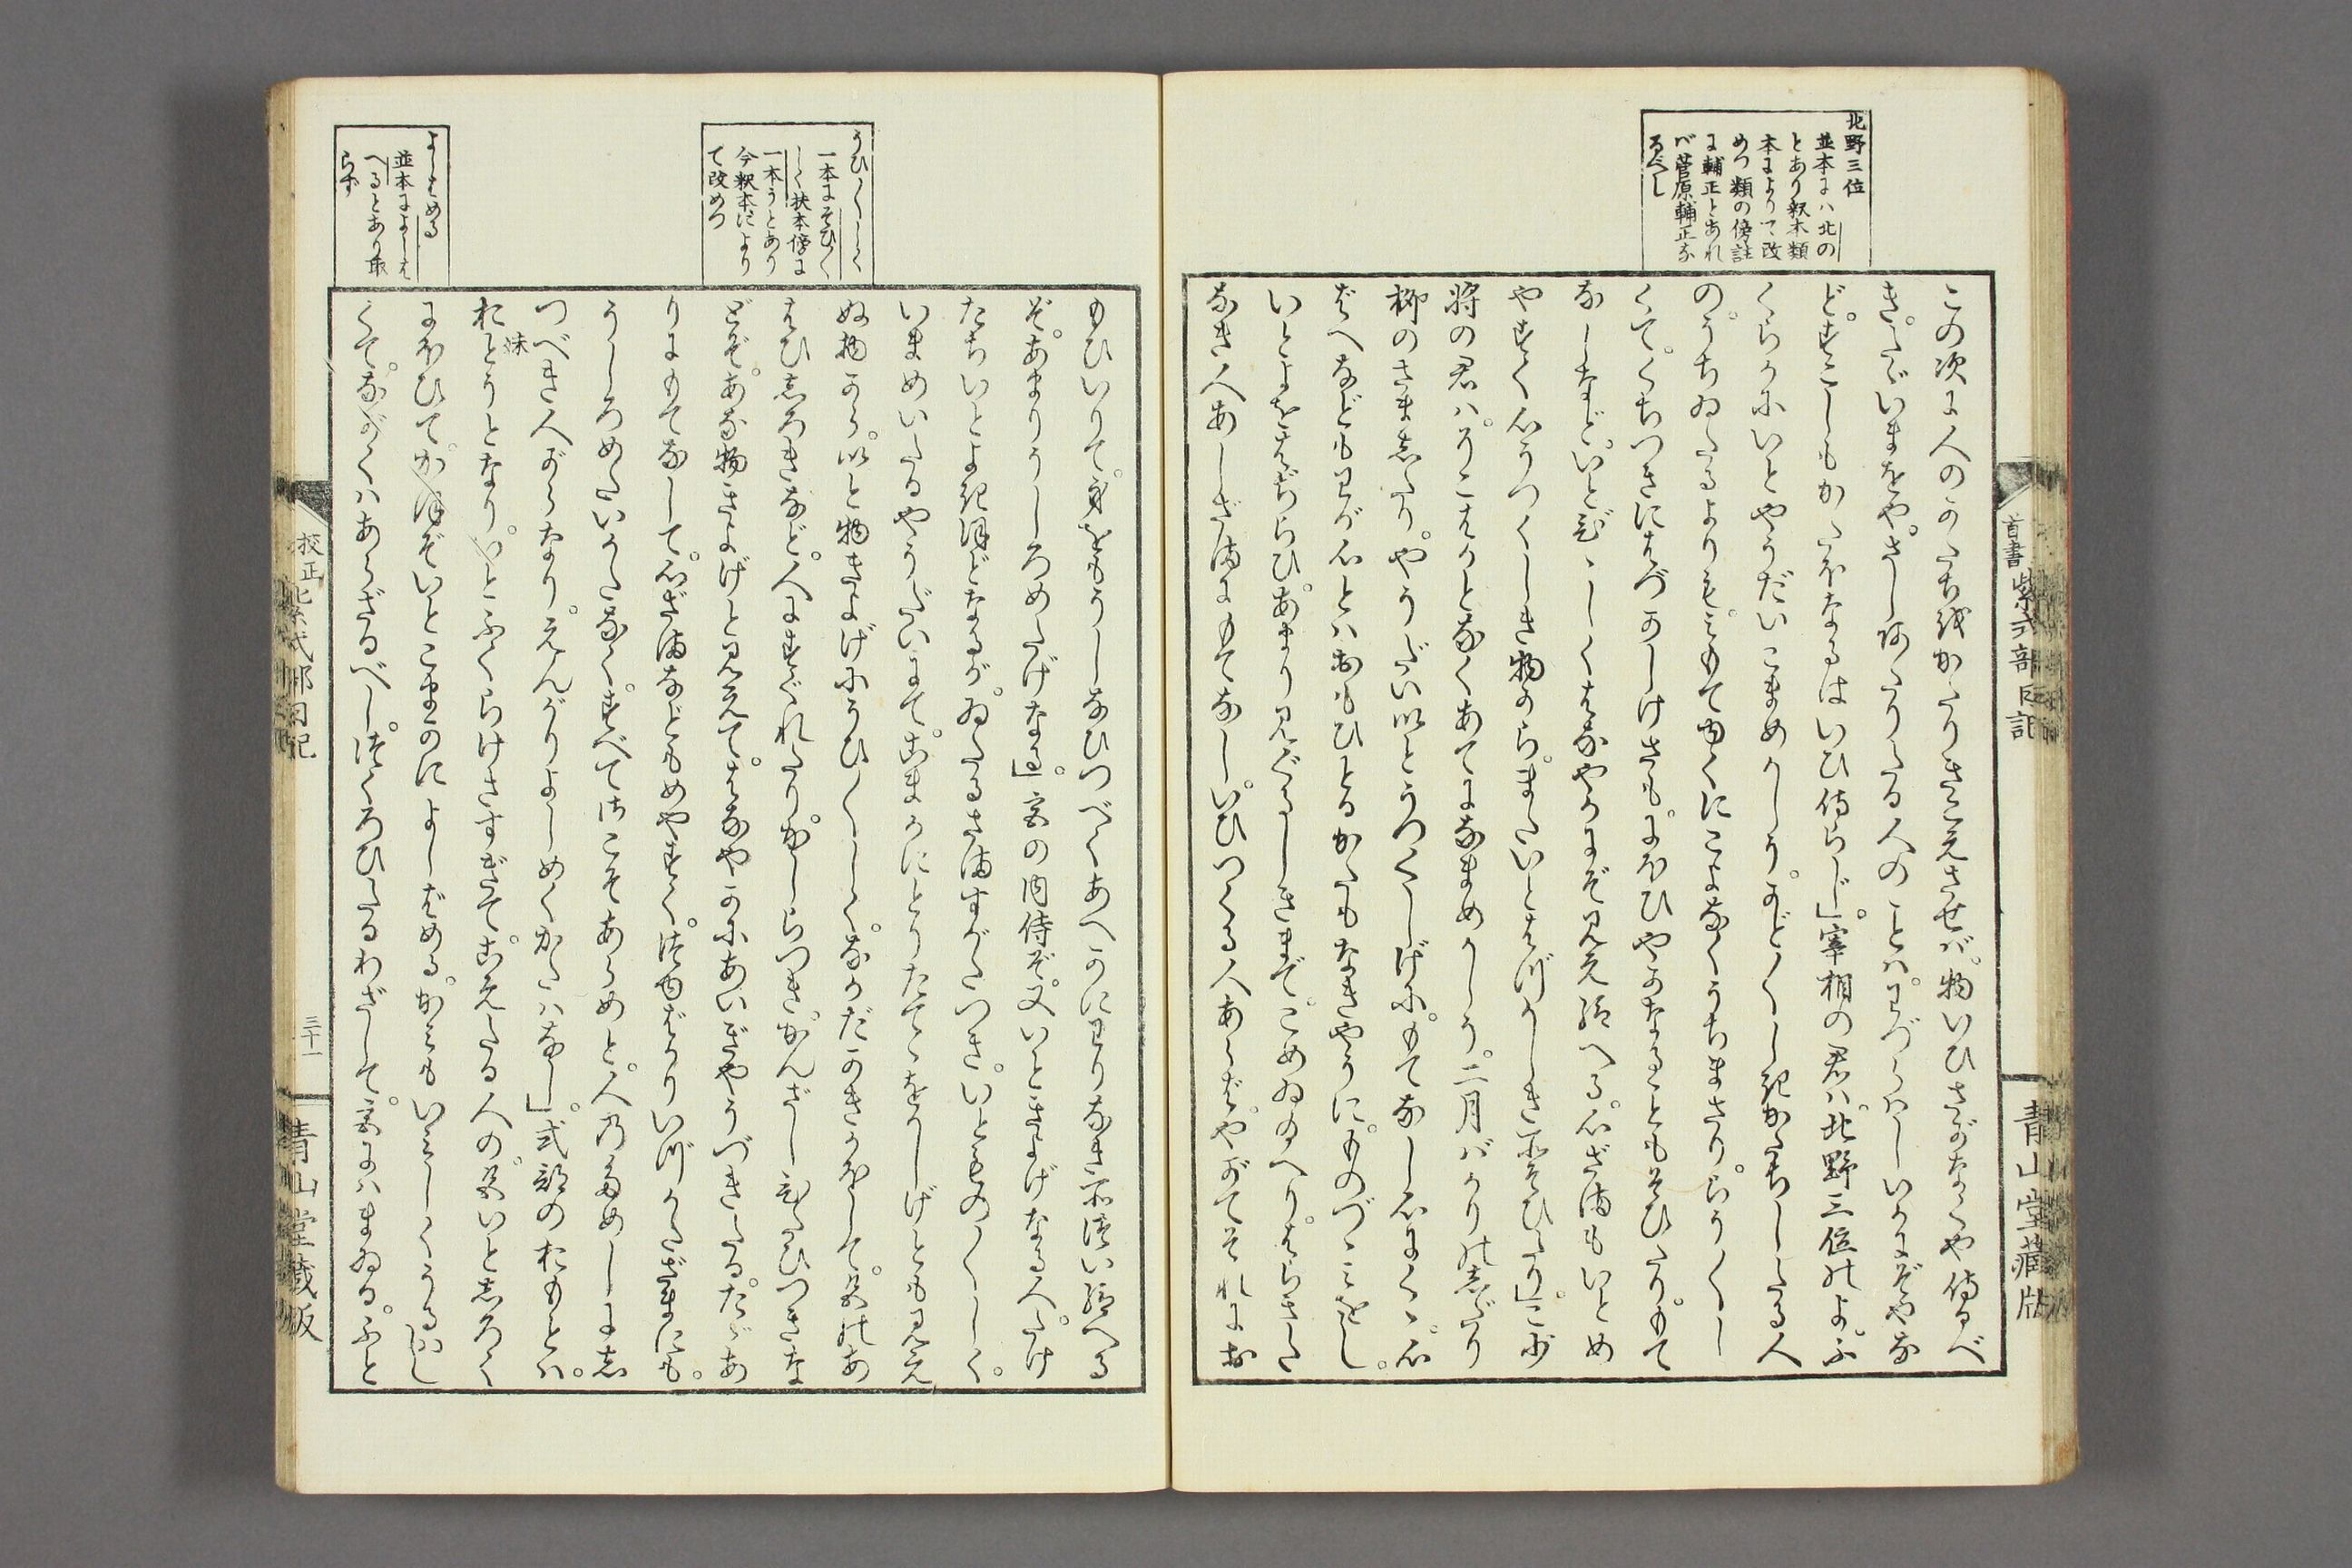 北野三位
並本にハ北の
とあり釈本類
本によりて改
めつ類の傍註
に輔正とあれ
バ菅原輔正な
るべし
この次に人のかたちをかたりきこえさせバ。物いひさがなくや侍るべ
き。たゞいまをや。さしあたりたる人のことハ。わづらハしいかにぞやな
ど。すこしもかたほなるはいひ侍らじ」。宰相の君ハ。北野三位のよ。ふ
くらかにいとやうだいこまめかしう。かど〱しきかたちしたる人
の。うちゐたるよりも。みもてゆくにこよなくうちまさり。らう〱し
くて。くちつきにはづかしけさも。にほひやかなることもそひたり。もて
なしなど。いとびゝしくはなやかにぞ見え給へる。心ざまもいとめ
やすく心うつくしき物から。またいとはづかしき所そひたり」。こ少
将の君ハ。そこはかとなくあてになまめかしう。二月バかりのしだり
柳のさましたり。やうだいいとうつくしげに。もてなし心にくゝ。心
ばへなどもわが心とハおもひとるかたもなきやうに。ものづゝみをし。
いとよをはぢらひ。あまり見ぐるしきまで。こめゐ給へり。はらきた
なき人あしざまにもてなし。いひつくる人あらば。やがてそれにお
首書
紫式部日記
青山堂藏版
うひ〱しく
一本にそひ〱
しく扶本傍に
一本うとあり
今釈本により
て改めつ
よしばめる
並本によしば
へるとあり取
らず
もひいりて。身をもうしなひつべくあへかにわりなき所つい給へる
ぞ。あまりうしろめたげなる」。宮の内侍ぞ。又いときよげなる人。たけ
たちいとよきほどなるが。ゐたるさますがたつき。いとものものしく。
いまめいたるやうだいにて。こまかにとりたてゝをかしげとも見え
ぬ物から。いと物きよげにうひ〱しく。なかだかきかほして。色のあ
はひしろきなど。人にすぐれたり。かしらつき。かんざしひたひつきな
どぞ。あな物きよげと見えて。はなやかにあいぎやうづきたる。たゞあ
りにもてなして。心ざまなどもめやすく。つゆばかりいづかたざまにも。
うしろめたいかたなく。すべてさこそあらめと。人のためしにし
つべき人がらなり。えんがりよしめくかたハなし」。式部のおもとハ。
妹
おとうとなり。いとふくらけさすぎて。こえたる人の。色いとしろく
にほひて。かほぞいとこまかによしばめる。かみもいみじくうるはし
くて。ながくハあらざるべし。つくろひたるわざして。宮にハまゐる。ふと
校正
紫式部日記
三十一
青山堂藏版